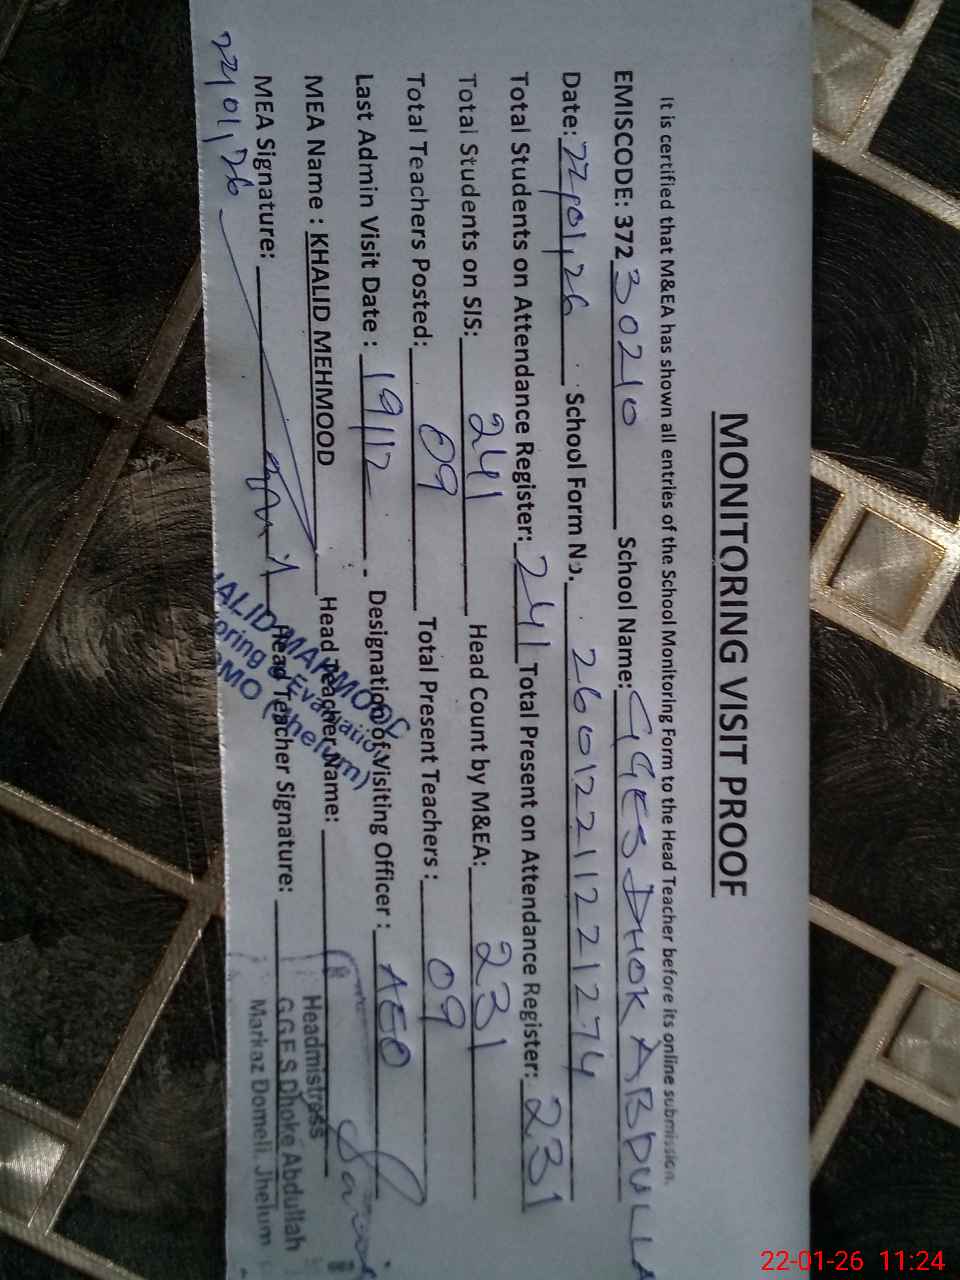 MONITORING VISIT PROOF
It is certified that M&EA has shown all entries of the School Monitoring Form to the Head Teacher before its online submission.
EMISCODE: 372 30210 School Name: GGES DHOK ABDULLA
Date: 22/01/26 School Form No. 26012211221274
Total Students on Attendance Register: 241 Total Present on Attendance Register: 231
Total Students on SIS: 241 Head Count by M&EA: 231
Total Teachers Posted: 09 Total Present Teachers : 09
Last Admin Visit Date : 19/12 Designation of Visiting Officer : AEO
MEA Name : KHALID MEHMOOD Head Teacher Name:
MEA Signature: Head Teacher Signature:
22/01/26
ALID MAHMOOD
oring & Evaluation
DMO (Jhelum)
Headmistress
G.G.E.S Dhoke Abdullah
Markaz Domeli, Jhelum
22-01-26 11:24